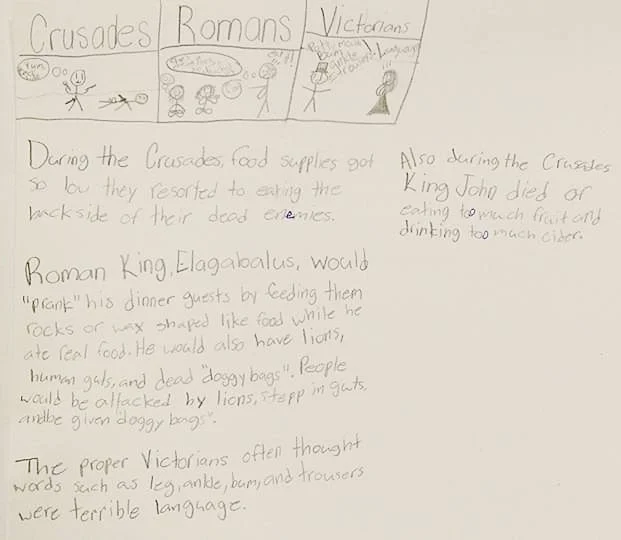 Crusades
Romans
Victorians
Yum
ankle
trousers
Language
During the Crusades, food supplies got
so low they resorted to eating the
backside of their dead enemies.
Roman King, Elagabalus, would
"prank" his dinner guests by feeding them
rocks or wax shaped like food while he
ate real food. He would also have lions,
human guts, and dead "doggy bags". People
would be attacked by lions, stepp in guts,
andbe given "doggy bags".
The proper Victorians often thought
words such as leg, ankle, bum, and trousers
were terrible language.
Also during the Crusades
King John died of
eating too much fruit and
drinking too much cider.